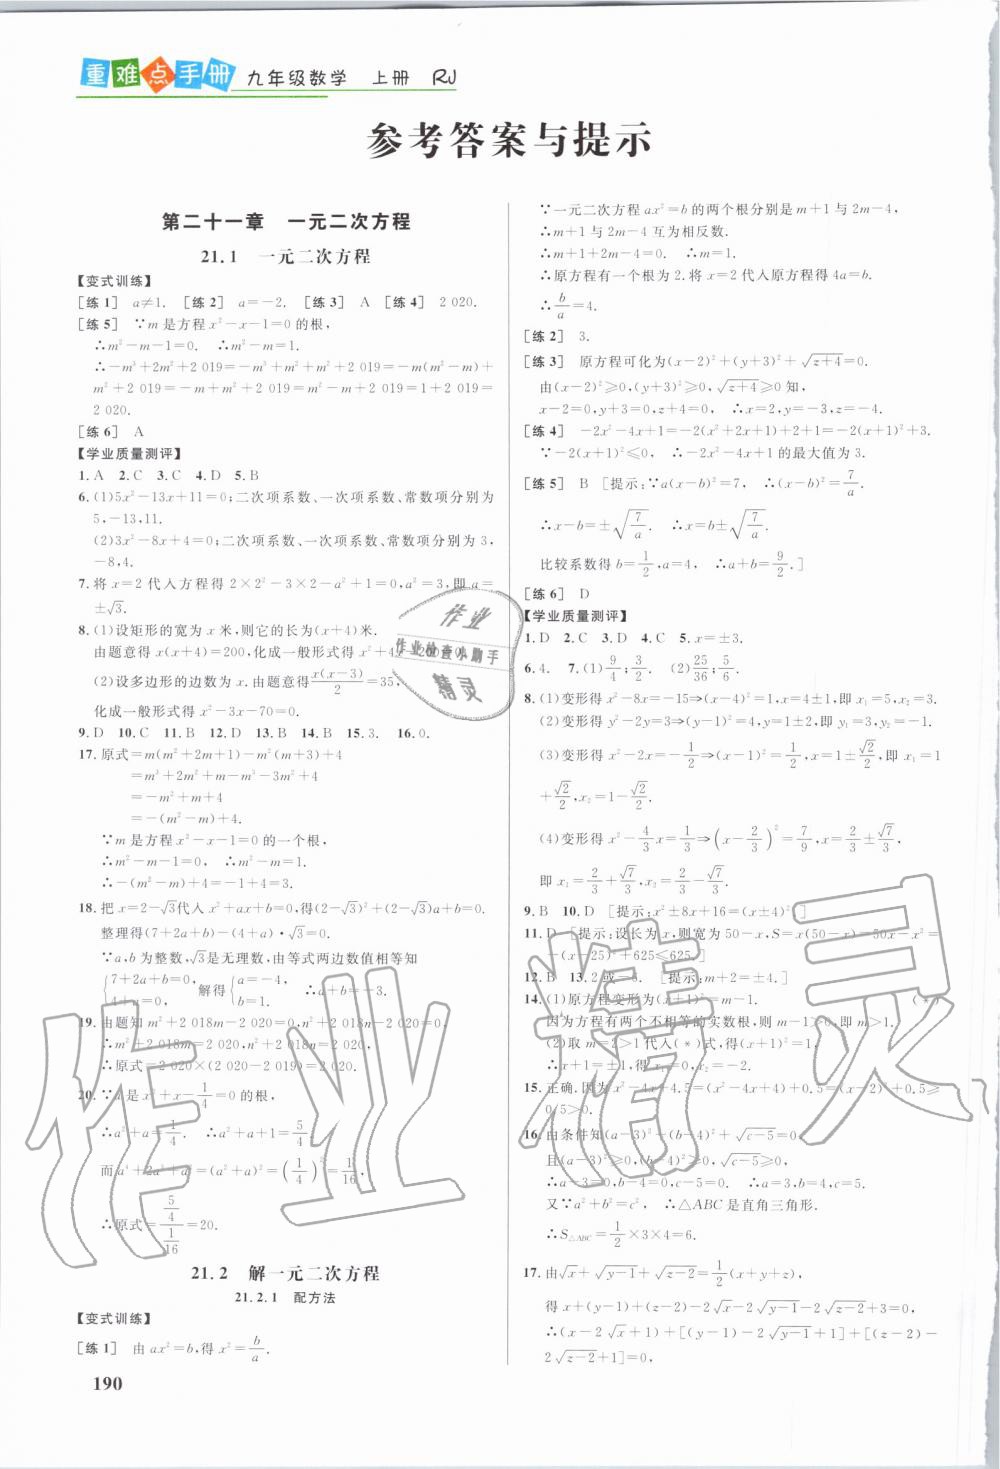 重难点手册 九年级数学 上册 RJ
参考答案与提示
第二十一章 一元二次方程
21.1 一元二次方程
【变式训练】
[练 1] a≠1. [练 2] a=-2. [练 3] A [练 4] 2 020.
[练 5] ∵m是方程x²-x-1=0的根,
∴m²-m-1=0. ∴m²-m=1.
∴-m³+2m²+2 019=-m³+m²+m²+2 019=-m(m²-m)+
m²+2 019=-m+m²+2 019=m²-m+2 019=1+2 019=
2 020.
[练 6] A
【学业质量测评】
1. A 2. C 3. C 4. D 5. B
6. (1)5x²-13x+11=0;二次项系数、一次项系数、常数项分别为
5,-13,11.
(2)3x²-8x+4=0;二次项系数、一次项系数、常数项分别为3,
-8,4.
7. 将x=2代入方程得2×2²-3×2-a²+1=0,a²=3,即a=
±√3.
8. (1)设矩形的宽为x米,则它的长为(x+4)米.
由题意得x(x+4)=200,化成一般形式得x²+4x-200=0.
(2)设多边形的边数为x.由题意得x(x-3)/2=35,
化成一般形式得x²-3x-70=0.
9. D 10. C 11. B 12. D 13. B 14. B 15. 3. 16. 0.
17. 原式=m(m²+2m+1)-m²(m+3)+4
=m³+2m²+m-m³-3m²+4
=-m²+m+4
=-(m²-m)+4.
∵m是方程x²-x-1=0的一个根,
∴m²-m-1=0. ∴m²-m=1.
∴-(m²-m)+4=-1+4=3.
18. 把x=2-√3代入x²+ax+b=0,得(2-√3)²+(2-√3)a+b=0.
整理得(7+2a+b)-(4+a)·√3=0.
∵a,b为整数,√3是无理数,由等式两边数值相等知
{7+2a+b=0, 4+a=0, 解得{a=-4, b=1. ∴a+b=-3.
19. 由题知m²+2 018m-2 020=0,n²+2 018n-2 020=0,
∴m²+2 018m=2 020,n²+2 018n=2 020,
∴原式=2 020×(2 020-2 019)=2 020.
20. ∵a是x²+x-1/4=0的根,
∴a²+a=1/4. ∴a²+a+1=5/4.
而a⁴+2a³+a²=(a²+a)²=(1/4)²=1/16,
∴原式=(5/4)/(1/16)=20.
21.2 解一元二次方程
21.2.1 配方法
【变式训练】
[练 1] 由ax²=b,得x²=b/a.
190
∵一元二次方程ax²=b的两个根分别是m+1与2m-4,
∴m+1与2m-4互为相反数.
∴m+1+2m-4=0. ∴m=1.
∴原方程有一个根为2.将x=2代入原方程得4a=b.
∴b/a=4.
[练 2] 3.
[练 3] 原方程可化为(x-2)²+(y+3)²+√(z+4)=0.
由(x-2)²≥0,(y+3)²≥0,√(z+4)≥0知,
x-2=0,y+3=0,z+4=0, ∴x=2,y=-3,z=-4.
[练 4] -2x²-4x+1=-2(x²+2x+1)+2+1=-2(x+1)²+3.
∵-2(x+1)²≤0, ∴-2x²-4x+1的最大值为3.
[练 5] B [提示:∵a(x-b)²=7, ∴(x-b)²=7/a.
∴x-b=±√(7/a). ∴x=b±√(7/a).
比较系数得b=1/2,a=4, ∴ab=9/2.]
[练 6] D
【学业质量测评】
1. D 2. C 3. D 4. C 5. x=±3.
6. 4. 7. (1)9/4;3/2. (2)25/36;5/6.
8. (1)变形得x²-8x=-15⇒(x-4)²=1,x=4±1,即x₁=5,x₂=3.
(2)变形得y²-2y=3⇒(y-1)²=4,y=1±2,即y₁=3,y₂=-1.
(3)变形得x²-2x=-1/2⇒(x-1)²=1/2,x=1±√2/2,即x₁=1
+√2/2,x₂=1-√2/2.
(4)变形得x²-4/3x=1/3⇒(x-2/3)²=7/9,x=2/3±√7/3,
即x₁=2/3+√7/3,x₂=2/3-√7/3.
9. B 10. D [提示:x²±8x+16=(x±4)².]
11. D [提示:设长为x,则宽为50-x,S=x(50-x)=50x-x²=
-(x-25)²+625≤625.]
12. B 13. 2或-6. [提示:m+2=±4.]
14. (1)原方程变形为(x+1)²=m-1. (*)
因为方程有两个不相等的实数根,则m-1>0,即m>1.
(2)取m=2>1代入(*)式,得(x+1)²=1,
∴x+1=±1,得x₁=0,x₂=-2.
15. 正确.因为x²-4x+4.5=(x²-4x+4)+0.5=(x-2)²+0.5≥
0.5>0.
16. 由条件知(a-3)²+(b-4)²+√(c-5)=0,
且(a-3)²≥0,(b-4)²≥0,√(c-5)≥0,
∴a-3=0,b-4=0,c-5=0.
又∵a²+b²=c², ∴△ABC是直角三角形.
∴S△ABC=1/2×3×4=6.
17. 由√x+√(y-1)+√(z-2)=1/2(x+y+z),
得x+(y-1)+(z-2)-2√x-2√(y-1)-2√(z-2)+3=0,
∴(x-2√x+1)+[(y-1)-2√(y-1)+1]+[(z-2)-
2√(z-2)+1]=0,
作业
作业检查小助手
精灵
作业精灵